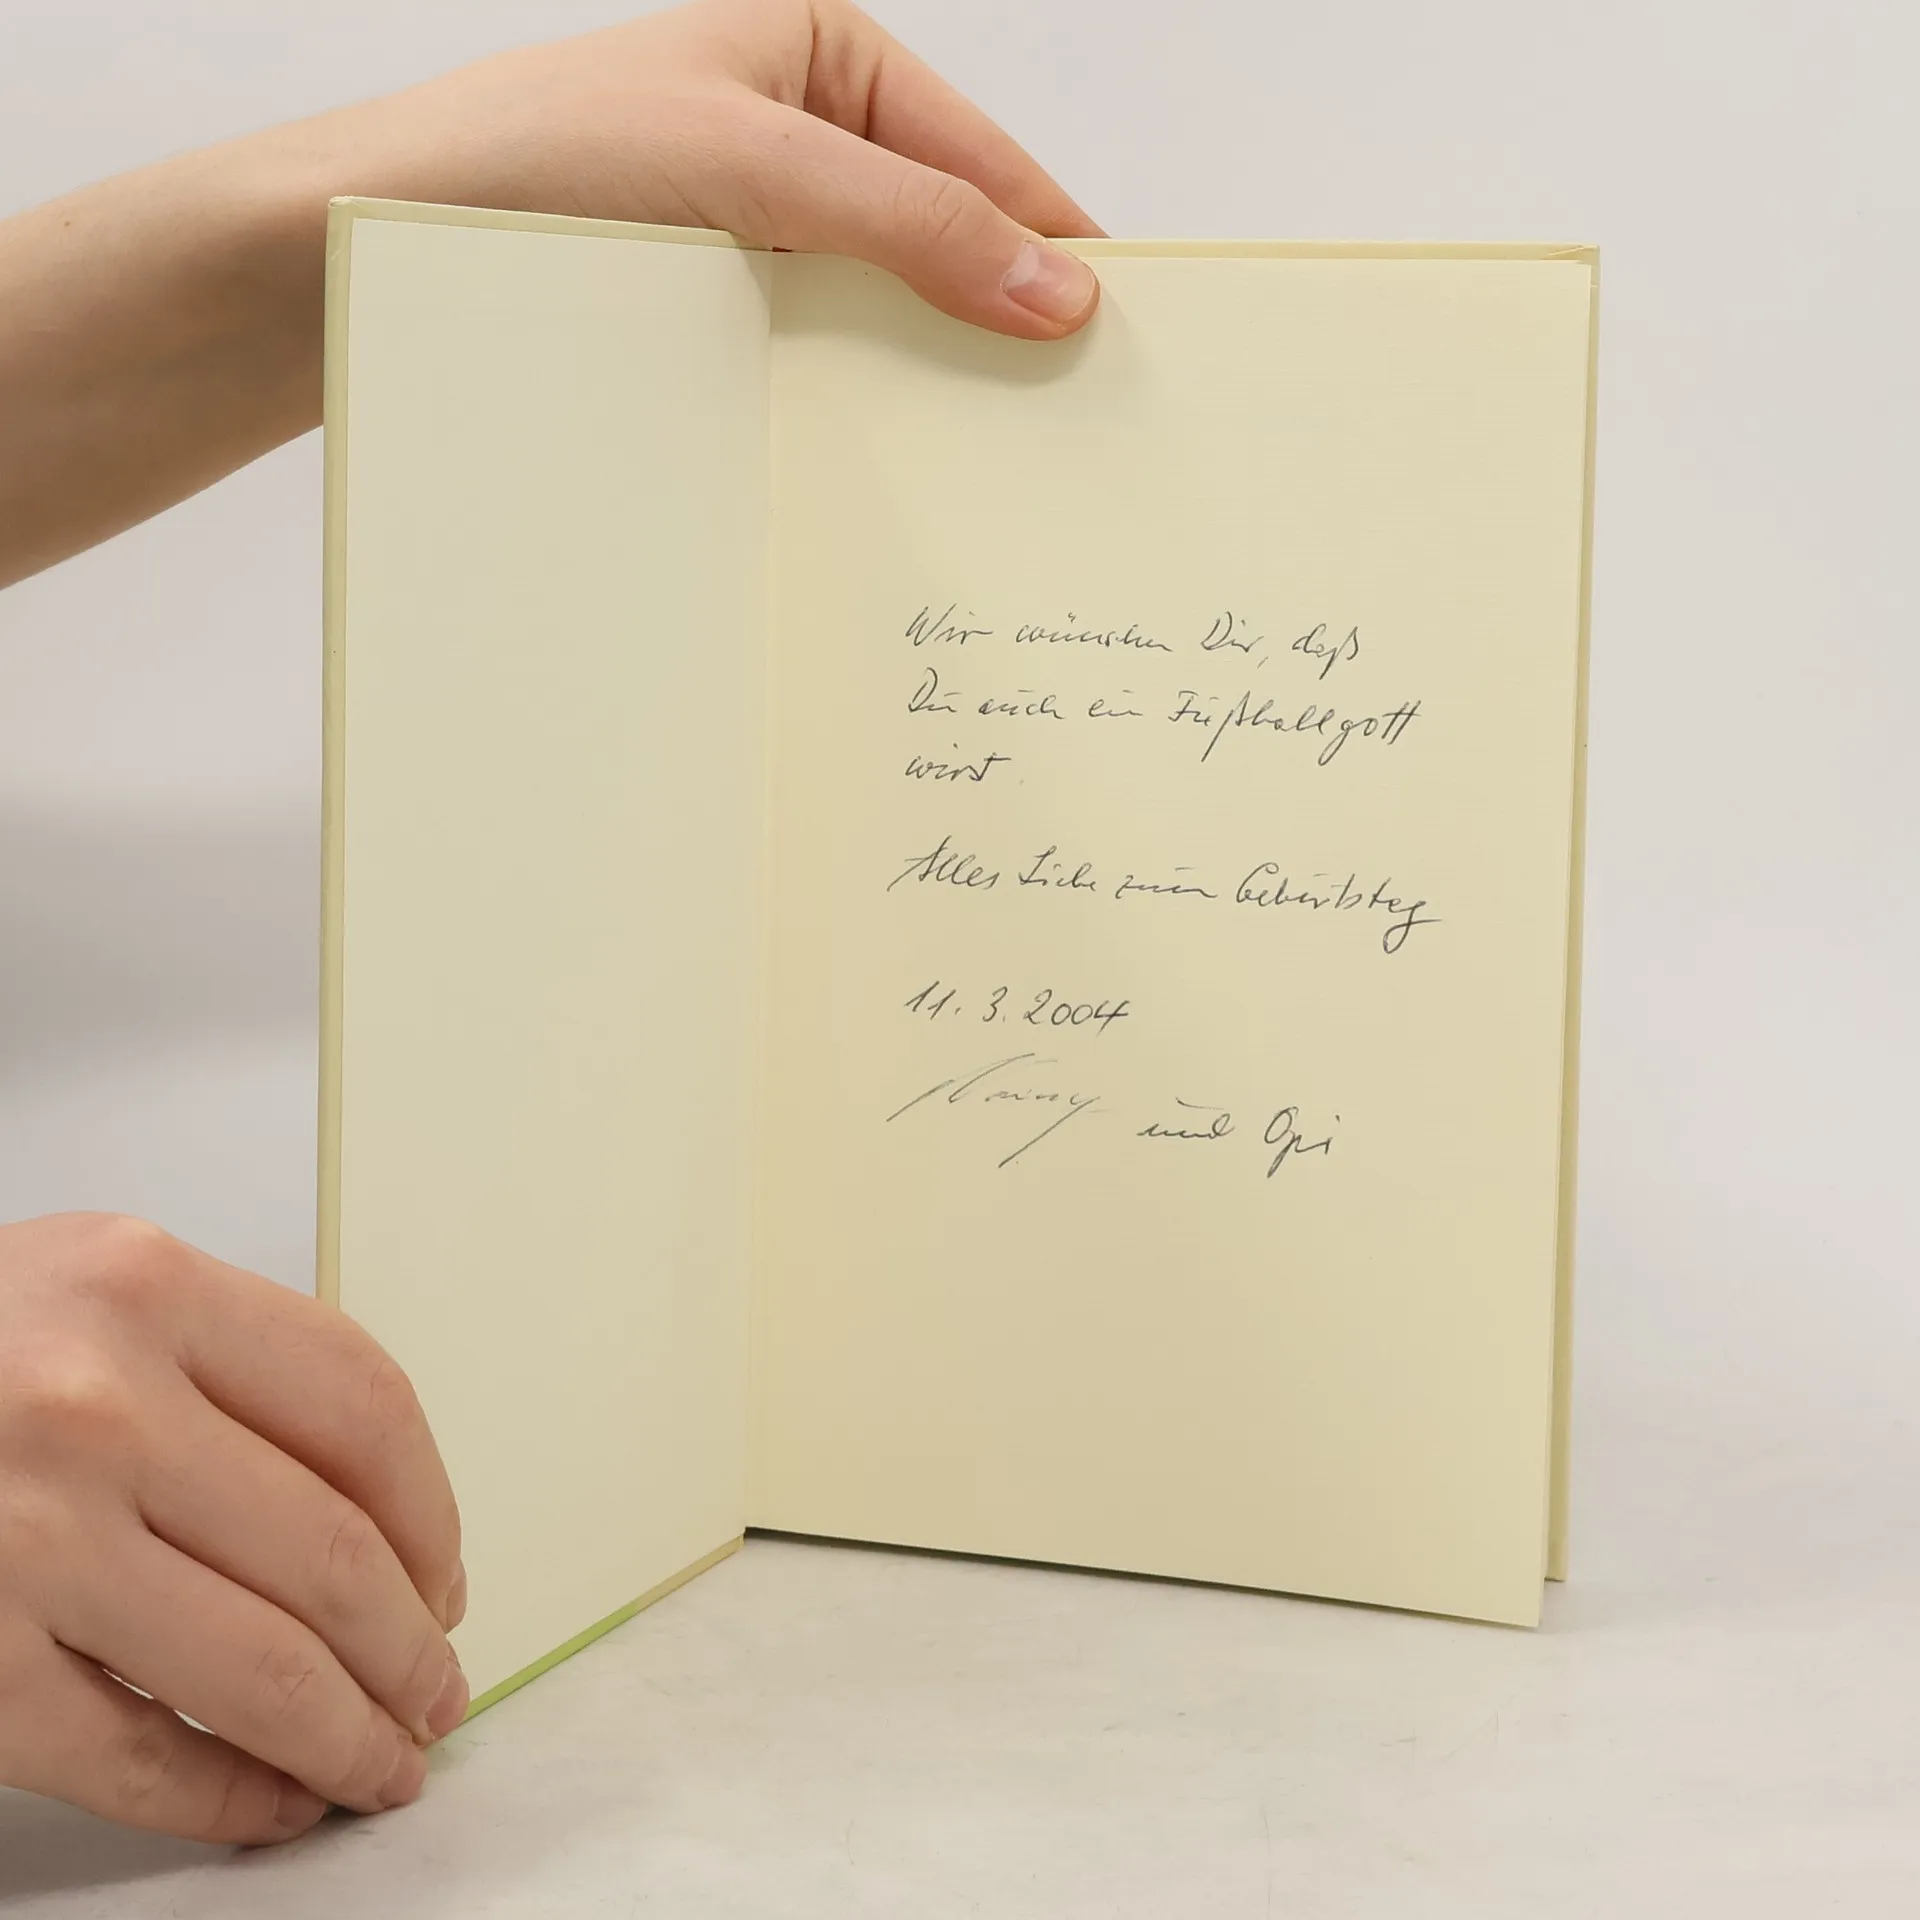 Wir wünschen Dir, daß
Du auch ein Fußballgott
wirst
Alles Liebe zum Geburtstag
11.3.2004
und Opi